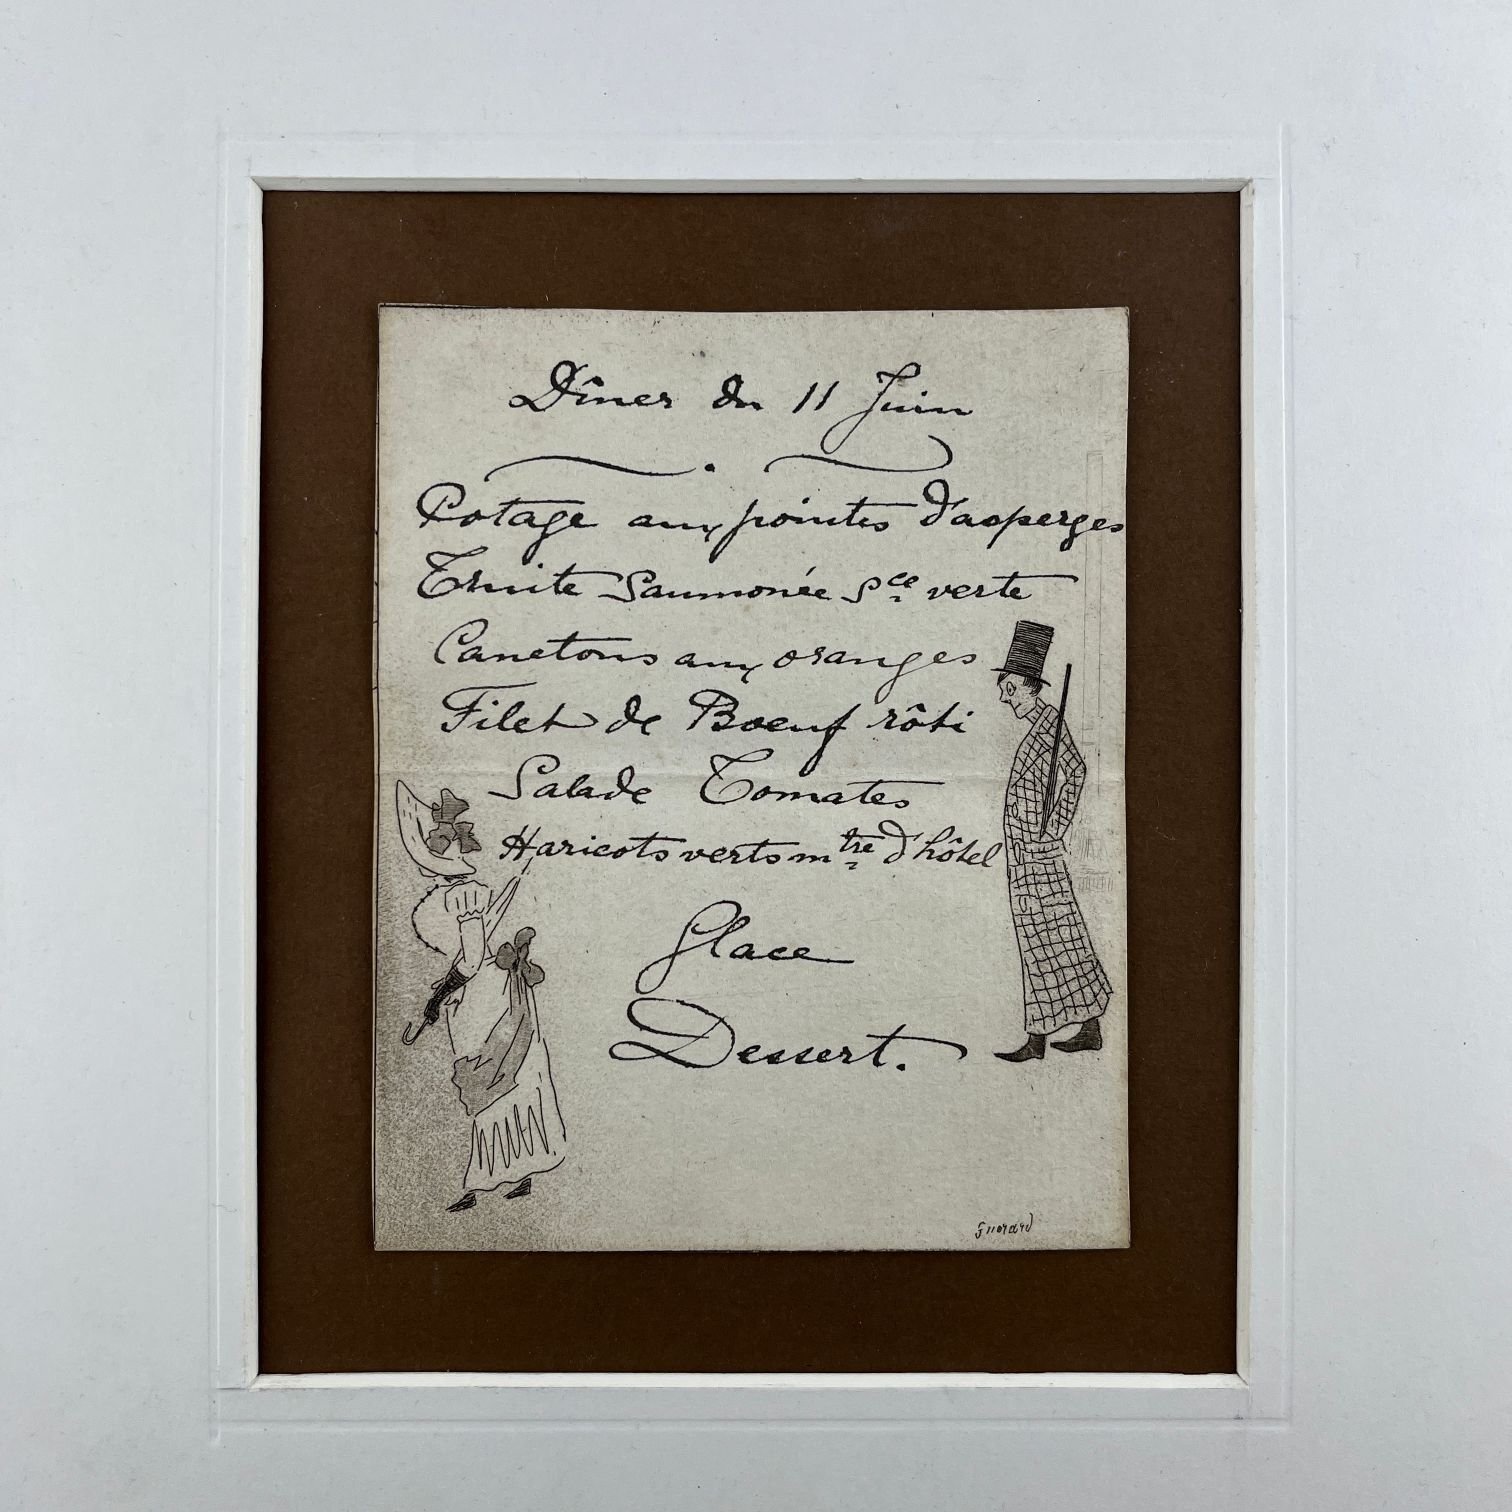 Dîner du 11 Juin
Potage aux pointes d'asperges
Truite Saumonée Sce verte
Canetons aux oranges
Filet de Boeuf rôti
Salade Tomates
Haricots verts mtre d'hôtel
Glace
Dessert.
Guerard